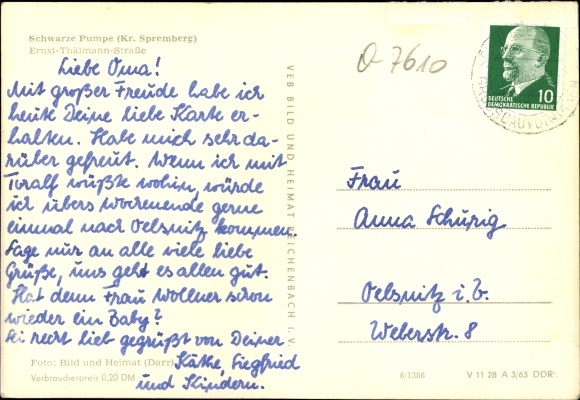 Schwarze Pumpe (Kr. Spremberg)
Ernst-Thälmann-Straße
Liebe Oma!
Mit großer Freude habe ich
heute Deine liebe Karte er-
halten. Habe mich sehr da-
rüber gefreut. Wenn ich mit
Toralf wüßte wohin, würde
ich übers wochenende gerne
einmal nach Oelsnitz kommen.
Sage nur an alle viele liebe
Grüße, uns geht es allen gut.
Hat denn Frau Wollner schon
wieder ein Baby?
Sei recht lieb gegrüßt von Deiner
Käthe, Siegfried
und Kindern.
Foto: Bild und Heimat (Darr)
Verbraucherpreis 0,20 DM
VEB BILD UND HEIMAT REICHENBACH I. V.
O 7610
10
DEUTSCHE
DEMOKRATISCHE REPUBLIK
Frau
Anna Schurig
Oelsnitz i. E.
Weberstr. 8
6/1386
V 11 28 A 3/63 DDR